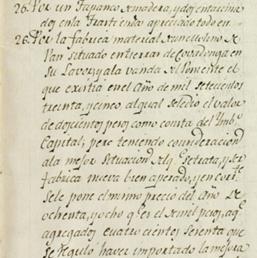 26. Por un Tapanco de madera, y dos entradas
dos en la Harti en da apreciado todo en
26. Por la fabrica material de un molino de
Pan situado en tierras de Covadonga en
su Lavor, y a la vanda del Poniente el
que existia en el Año de mil setecientos
treinta, y cinco, al qual se le dio el valor
de doscientos pesos como consta del Ymb.o
Capital; pero teniendo consideracion
a la mejor situacion de lq.e se trata, y ser
fabrica nueva bien aperada, y en corr.te
se le pone el mismo precio del año de
ochenta, y ocho q.e es de mil pesos, a q.e
agregados cuatrocientos sesenta que
se reguló haver importado la mejora